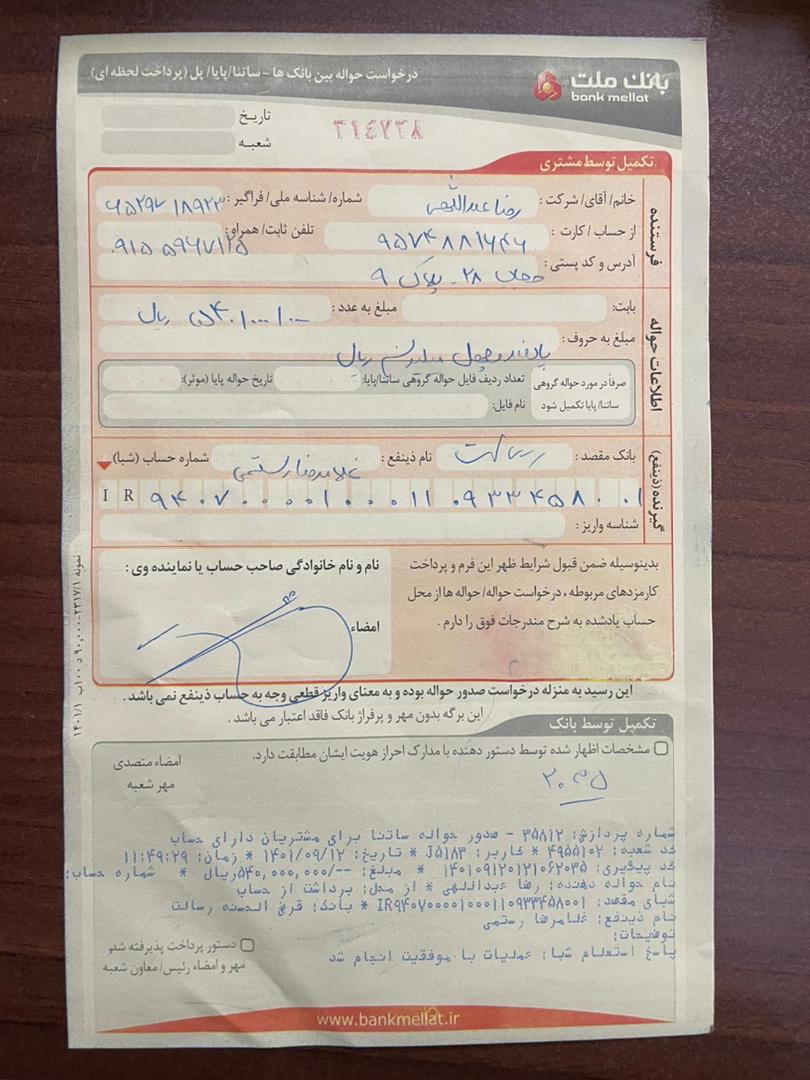 درخواست حواله بین بانک ها - ساتنا/ پایا/ پل (پرداخت لحظه ای)
بانک ملت
bank mellat
تاریخ
شعبه
۳۱۴۷۳۸
تکمیل توسط مشتری
فرستنده
خانم/ آقای/ شرکت : رضا عبداللهی شماره/ شناسه ملی/ فراگیر :
از حساب / کارت : تلفن ثابت/ همراه : ۰۹۱۵ ۵۹۶۷۱۲۵
آدرس و کد پستی : ۲۸ - پلاک ۹
اطلاعات حواله
بابت: مبلغ به عدد : ۵۴۰٫۰۰۰٫۰۰۰ ریال
مبلغ به حروف : پانصد و چهل میلیون ریال
صرفاً در مورد حواله گروهی ساتنا/ پایا تکمیل شود
تعداد ردیف فایل حواله گروهی ساتنا/پایا: تاریخ حواله پایا (موثر):
نام فایل:
گیرنده (ذینفع)
بانک مقصد : رسالت نام ذینفع : غلامرضا رستمی شماره حساب (شبا)
IR ۹۴۰۷۰۰۰۰۱۰۰۰۱۱۰۹۳۳۴۵۸۰۰۱
شناسه واریز :
بدینوسیله ضمن قبول شرایط ظهر این فرم و پرداخت
کارمزدهای مربوطه ، درخواست حواله/ حواله ها از محل
حساب یادشده به شرح مندرجات فوق را دارم .
نام و نام خانوادگی صاحب حساب یا نماینده وی :
امضاء
این رسید به منزله درخواست صدور حواله بوده و به معنای واریز قطعی وجه به حساب ذینفع نمی باشد .
این برگه بدون مهر و پرفراژ بانک فاقد اعتبار می باشد .
تکمیل توسط بانک
مشخصات اظهار شده توسط دستور دهنده با مدارک احراز هویت ایشان مطابقت دارد.
امضاء متصدی
مهر شعبه
شماره پردازش: ۳۵۸۱۲ - صدور حواله ساتنا برای مشتریان دارای حساب
کد شعبه: ۴۹۵۵۱۰۲ * کاربر: J۵۱۸۳ * تاریخ: ۱۴۰۱/۰۹/۱۲ * زمان: ۱۱:۴۹:۲۹
کد پیگیری: ۱۴۰۱۰۹۱۲۰۱۲۱۰۶۲۰۳۵ * مبلغ: --/۵۴۰,۰۰۰,۰۰۰ریال * شماره حساب:
نام حواله دهنده: رضا عبداللهی * از محل: برداشت از حساب
شبای مقصد: IR۹۴۰۷۰۰۰۰۱۰۰۰۱۱۰۹۳۳۴۵۸۰۰۱ * بانک: قرض الحسنه رسالت
نام ذینفع: غلامرضا رستمی
توضیحات:
پاسخ استعلام شبا: عملیات با موفقیت انجام شد
دستور پرداخت پذیرفته شد.
مهر و امضاء رئیس/ معاون شعبه
www.bankmellat.ir